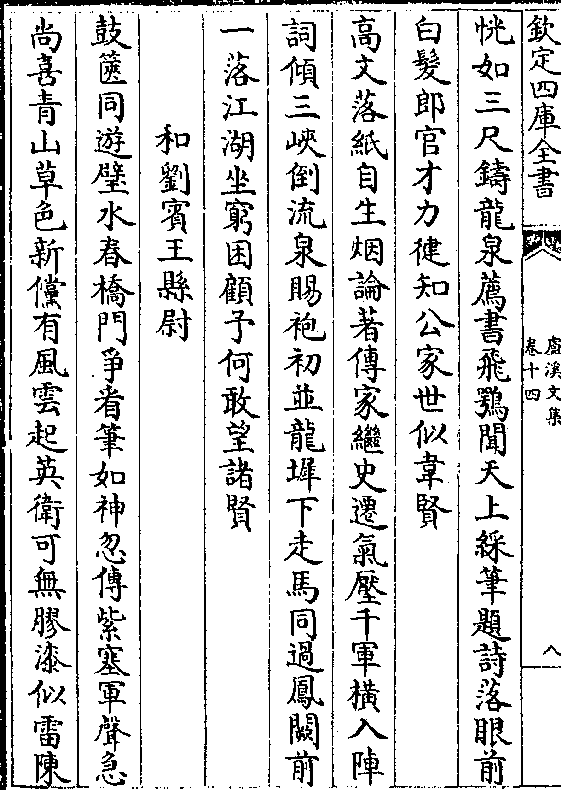 欽定四庫全書
盧溪文集
卷十四
八
恍如三尺鑄龍泉薦書飛鶚聞天上綵筆題詩落眼前
白髮郎官才力健知公家世似韋賢
高文落紙自生烟論著傳家繼史遷氣壓千軍横入陣
詞傾三峽倒流泉賜袍初並龍墀下走馬同過鳳闕前
一落江湖坐窮困顧予何敢望諸賢
和劉賓王縣尉
鼓篋同遊璧水春橋門爭看筆如神忽傳紫塞軍聲急
尚喜青山草色新儻有風雲起英衛可無膠漆似雷陳